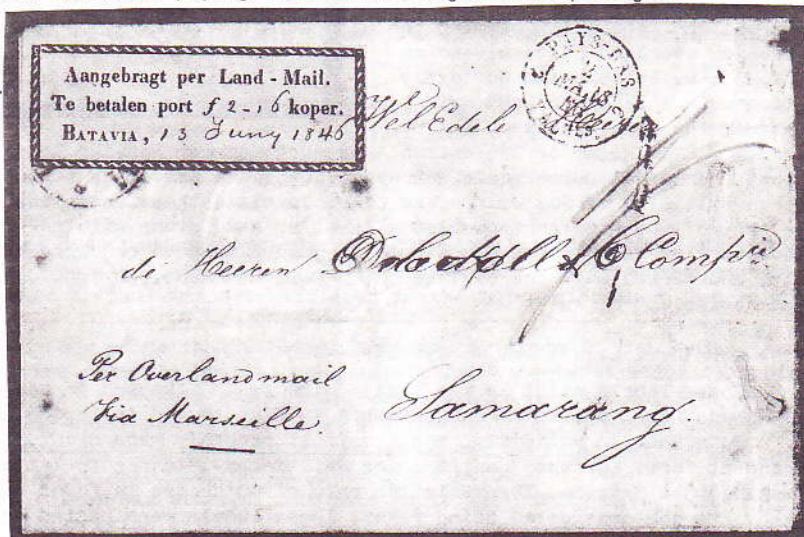 Aangebragt per Land-Mail.
Te betalen port f 2-16 koper.
BATAVIA, 13 Juny 1846
PAYS-BAS
2
MARS
Wel Edele
de Heeren & Compie
Per Overland mail
Via Marseille.
Samarang.